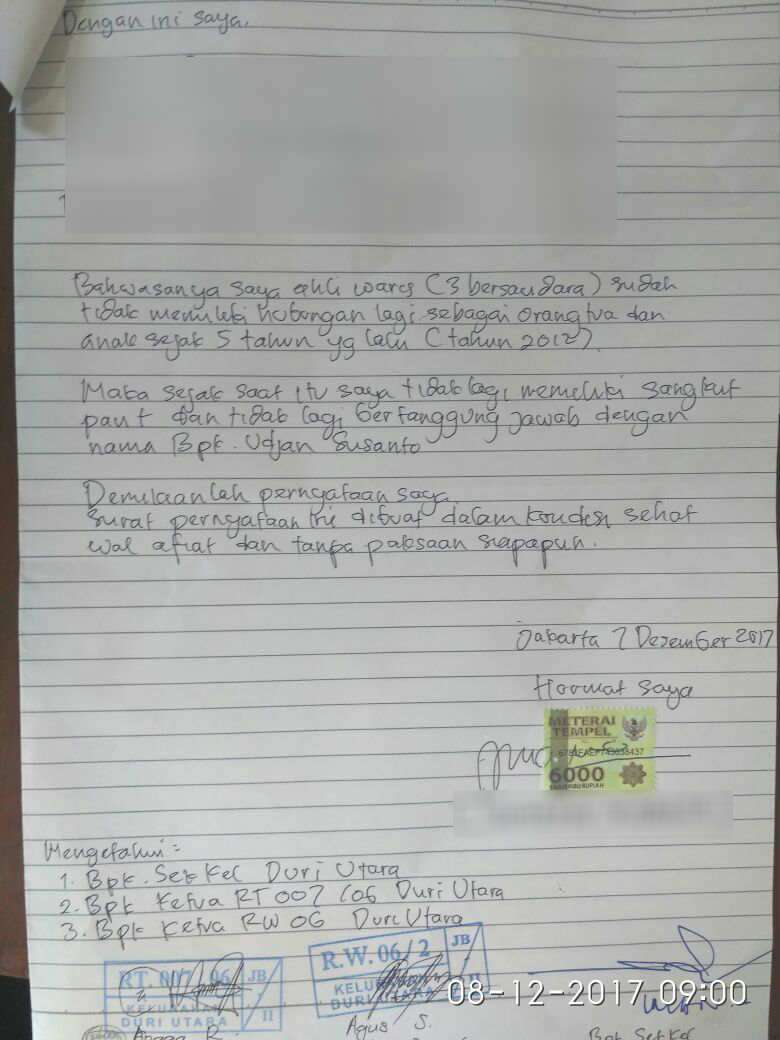 Dengan ini saya,
Bahwasanya saya ahli waris (3 bersaudara) sudah
tidak memiliki hubungan lagi sebagai orangtua dan
anak sejak 5 tahun yg lalu (tahun 2012).
Maka sejak saat itu saya tidak lagi memiliki sangkut
paut dan tidak lagi bertanggung jawab dengan
nama Bpk. Udjan Susanto
Demikianlah pernyataan saya.
Surat pernyataan ini dibuat dalam kondisi sehat
wal afiat dan tanpa paksaan siapapun.
Jakarta 7 Desember 2017
Hormat saya
METERAI
TEMPEL
6000
ENAM RIBU RUPIAH
Mengetahui :
1. Bpk. Sek Kel Duri Utara
2. Bpk Ketua RT 007 / 06 Duri Utara
3. Bpk Ketua RW 06 Duri Utara
RT. 007 / 06 JB
KELURAHAN
DURI UTARA II
R.W. 06 / 2 JB
KELURAHAN
DURI UTARA II
08-12-2017 09:00
Angga R.
Agus S.
Bpk Sek Kel